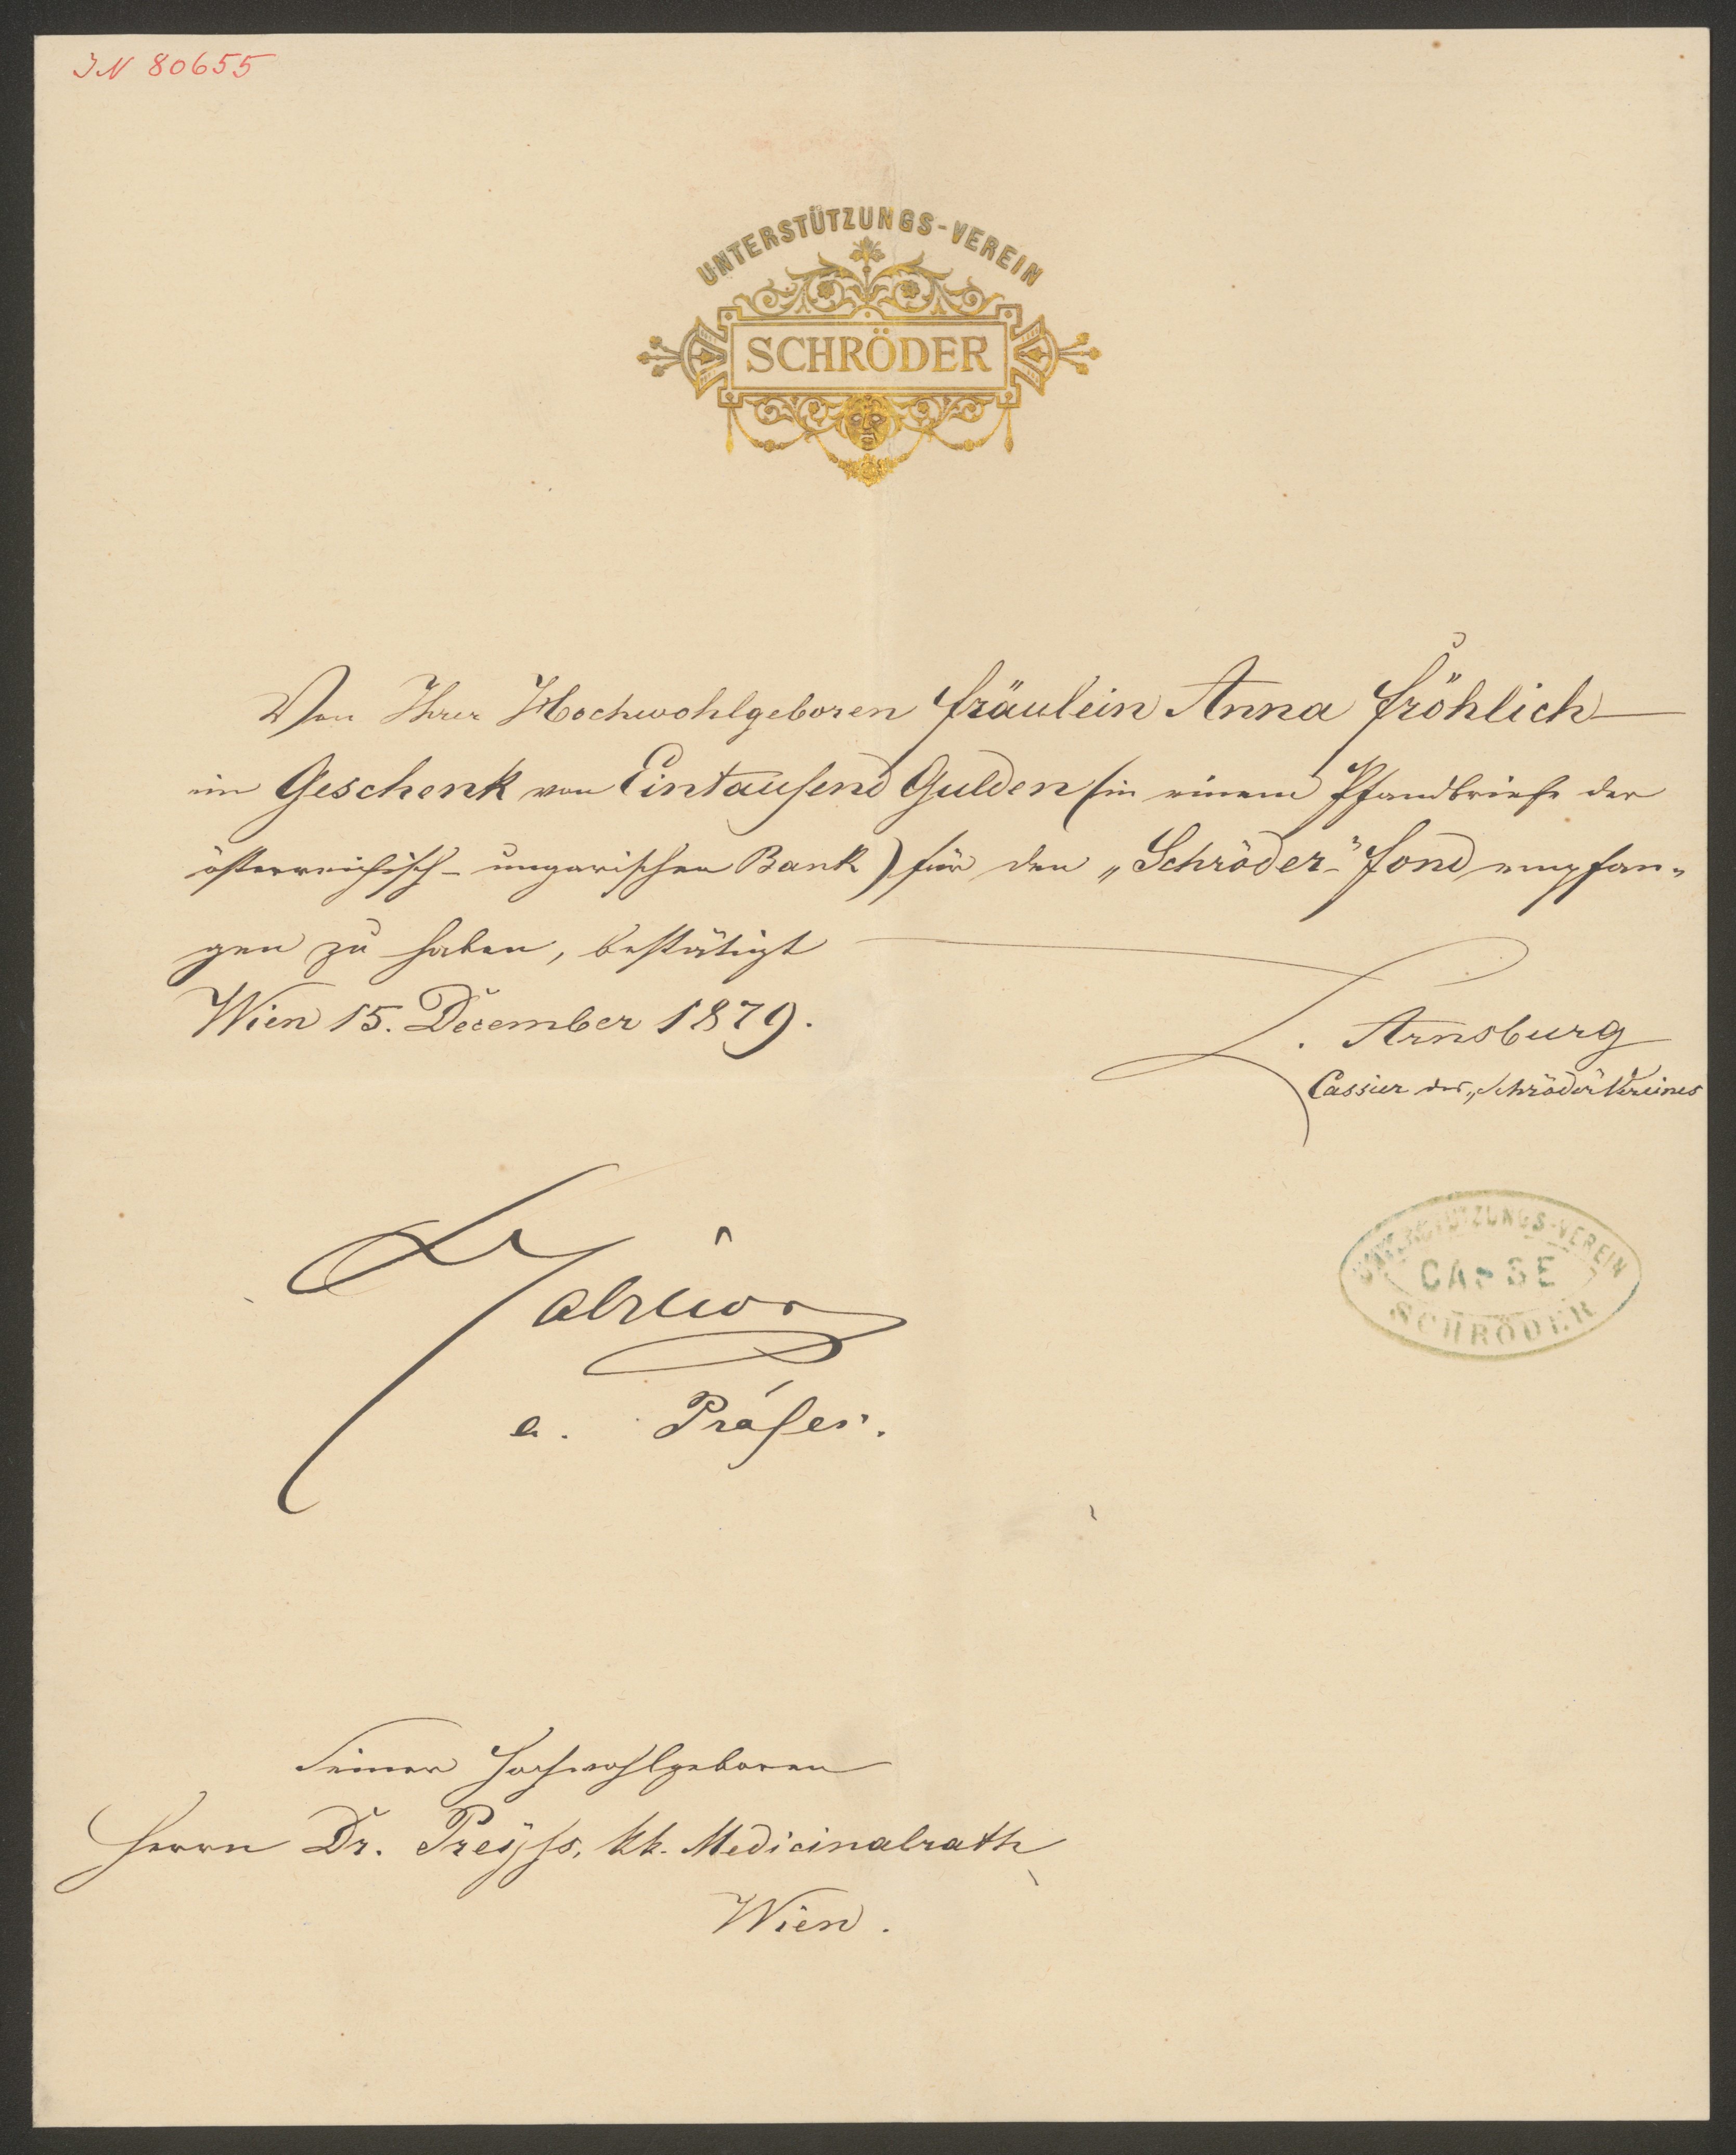 IN 80655
UNTERSTÜTZUNGS-VEREIN
SCHRÖDER
Von Ihrer Hochwohlgeboren Fräulein Anna Fröhlich
im Geschenk von Eintausend Gulden (in einem Pfandbriefe der
österreichisch-ungarischen Bank) für den „Schröder-" Fond empfan-
gen zu haben, bestätigt
Wien 15. December 1879.
L. Arnsburg
Cassier des „Schröder" Vereines
UNTERSTÜTZUNGS-VEREIN
CASSE
SCHRÖDER
Präses.
Seiner Hochwohlgeboren
Herrn Dr. Preyss, kk. Medicinalrath
Wien.